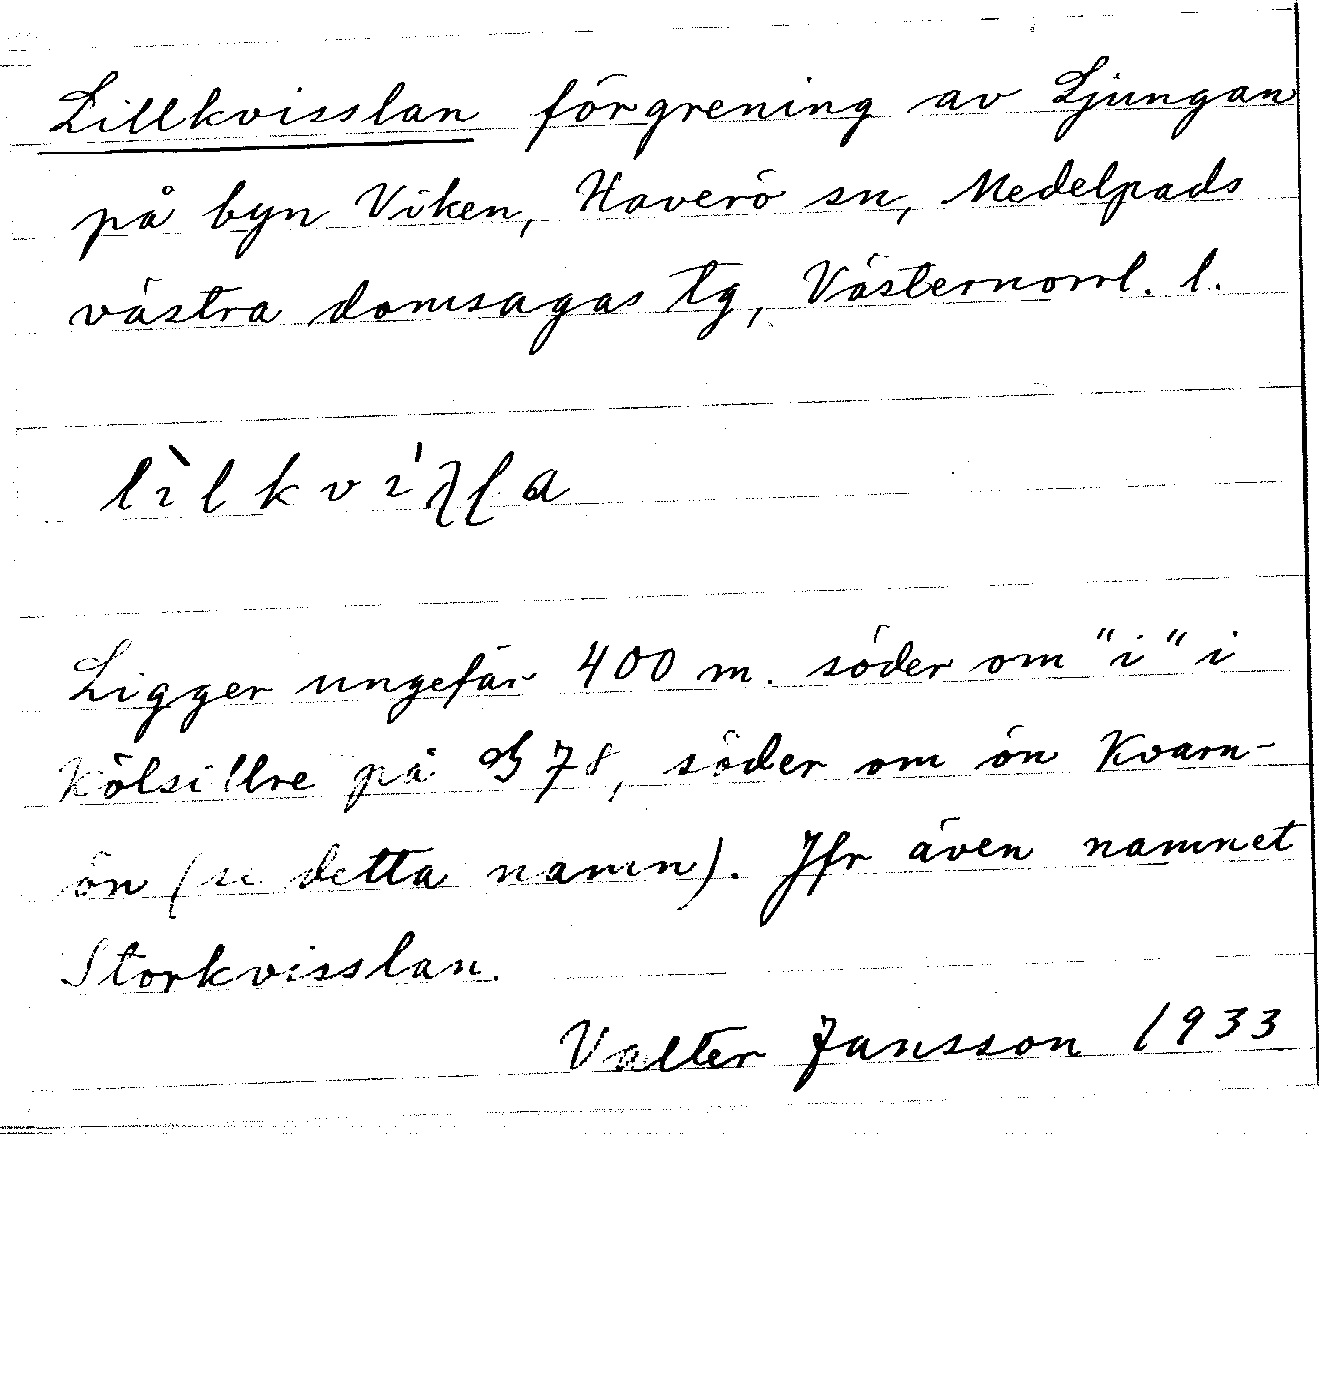 Lillkvisslan förgrening av Ljungan
på byn Viken, Haverö sn, Medelpads
västra domsagas tg, Västernorrl. l.
Ligger ungefär 400 m. söder om "i" i
Kölsillre på GB 78, söder om ön Kvarn-
ön (se detta namn). Jfr även namnet
Storkvisslan.
Valter Jansson 1933